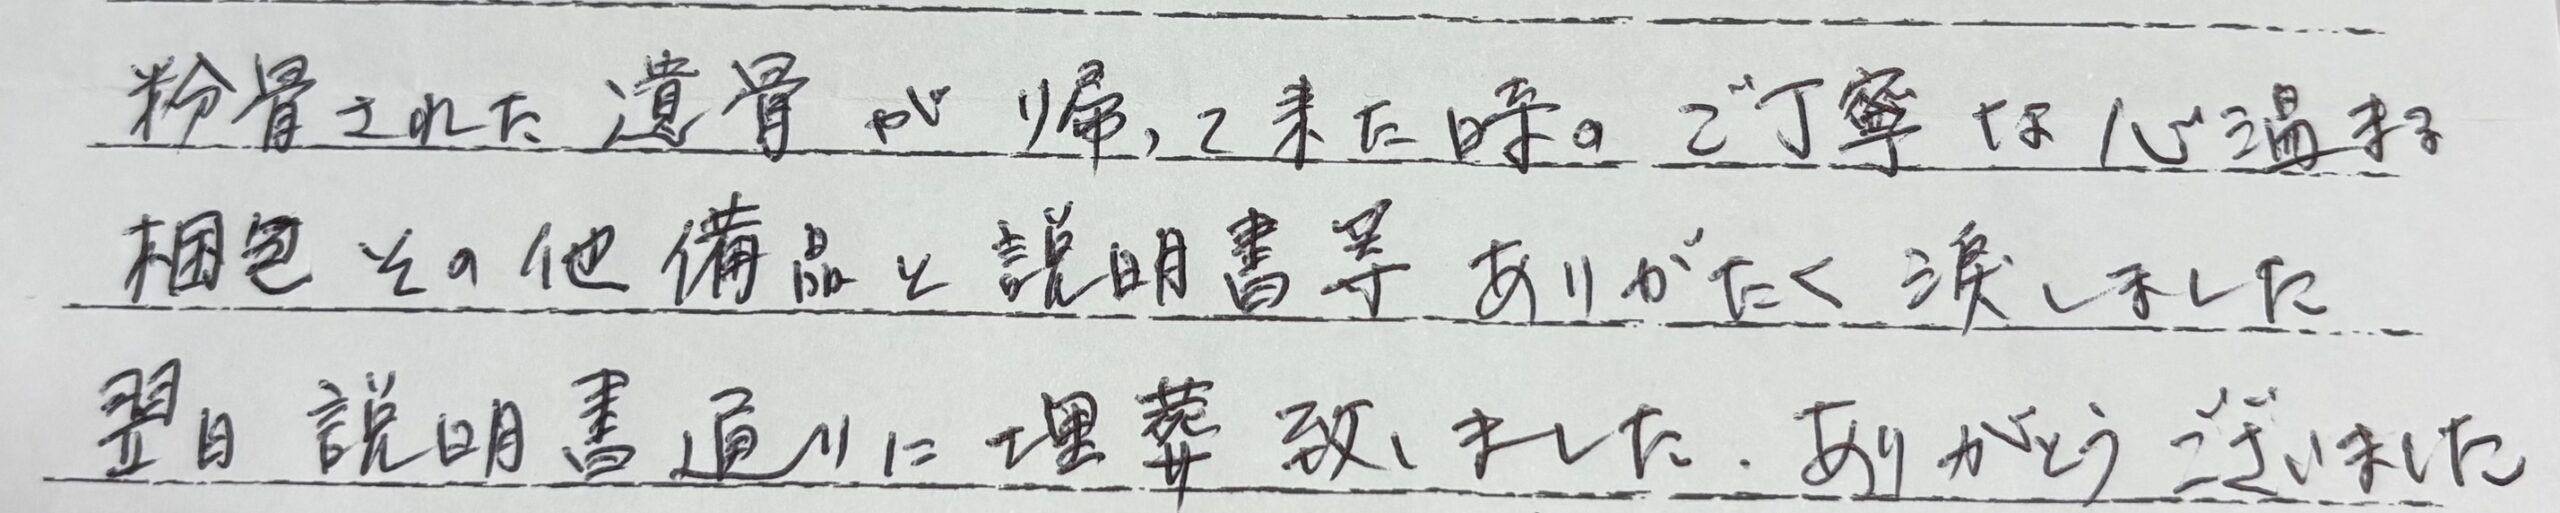 粉骨された遺骨が帰って来た時のご丁寧な心温まる
梱包その他備品と説明書等ありがたく涙しました
翌日説明書通りに埋葬致しました.ありがとうございました